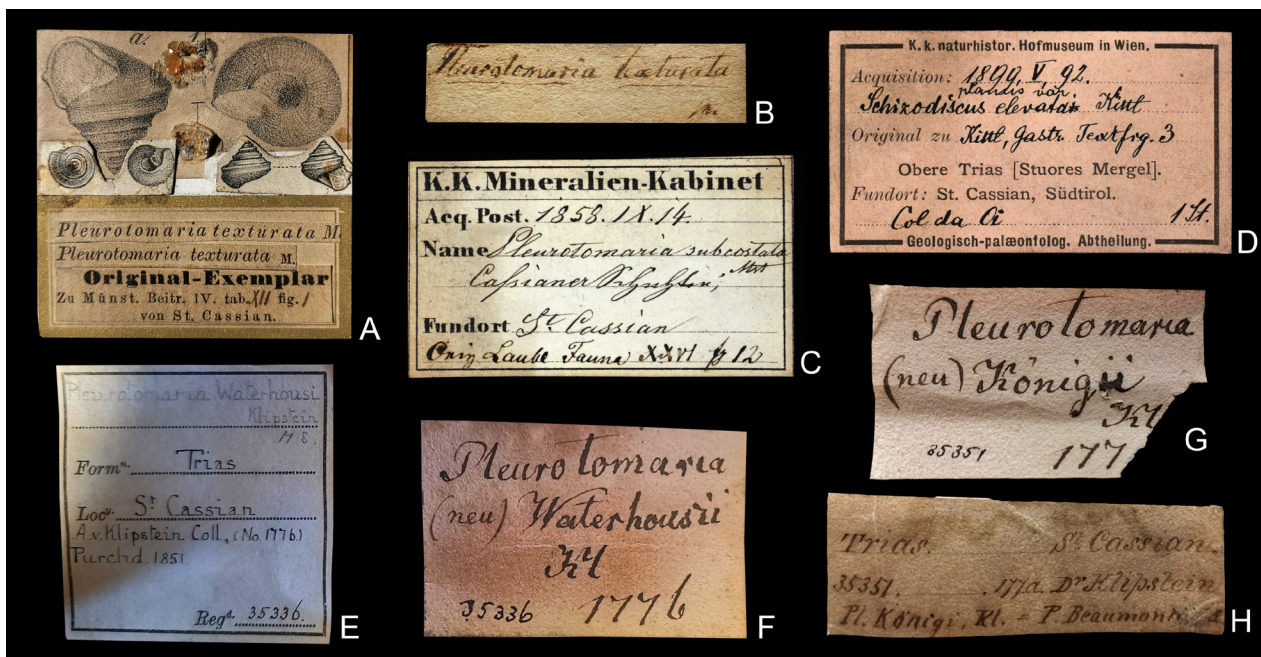 a. 1.
Pleurotomaria texturata M.
Pleurotomaria texturata M.
Original-Exemplar
Zu Münst. Beitr. IV. tab. XII fig. 1
von St. Cassian.
A
Pleurotomaria texturata
m.
B
K.K. Mineralien-Kabinet
Acq. Post. 1858. IX. 14.
Name Pleurotomaria subcostata
Mst
Cassianer
Fundort St. Cassian
Orig Laube Fauna XXVI fg 12
C
K. k. naturhistor. Hofmuseum in Wien.
Acquisition: 1899. V. 92.
planus var.
Schizodiscus elevatar Kittl
Original zu Kittl, Gastr. Textfig. 3
Obere Trias [Stuores Mergel].
Fundort: St. Cassian, Südtirol.
Col da Oi 1 St.
Geologisch-palæontolog. Abtheilung.
D
Pleurotomaria Waterhousi
Klipstein
M S.
Formn. Trias
Locy. St Cassian
A.v.Klipstein Coll., (No. 1776.)
Purchd. 1851.
Regd. 35336.
E
Pleurotomaria
(neu) Waterhousii
Kl
35336 1776
F
Pleurotomaria
(neu) Königii
Kl
35351 177
G
Trias. St. Cassian.
35351. 177a Dr Klipstein
Pl. Königi, Kl. = P. Beaumonti
H